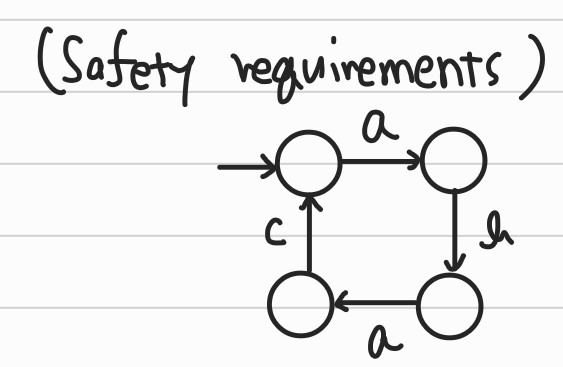 (Safety requirements)
a
c
h
a